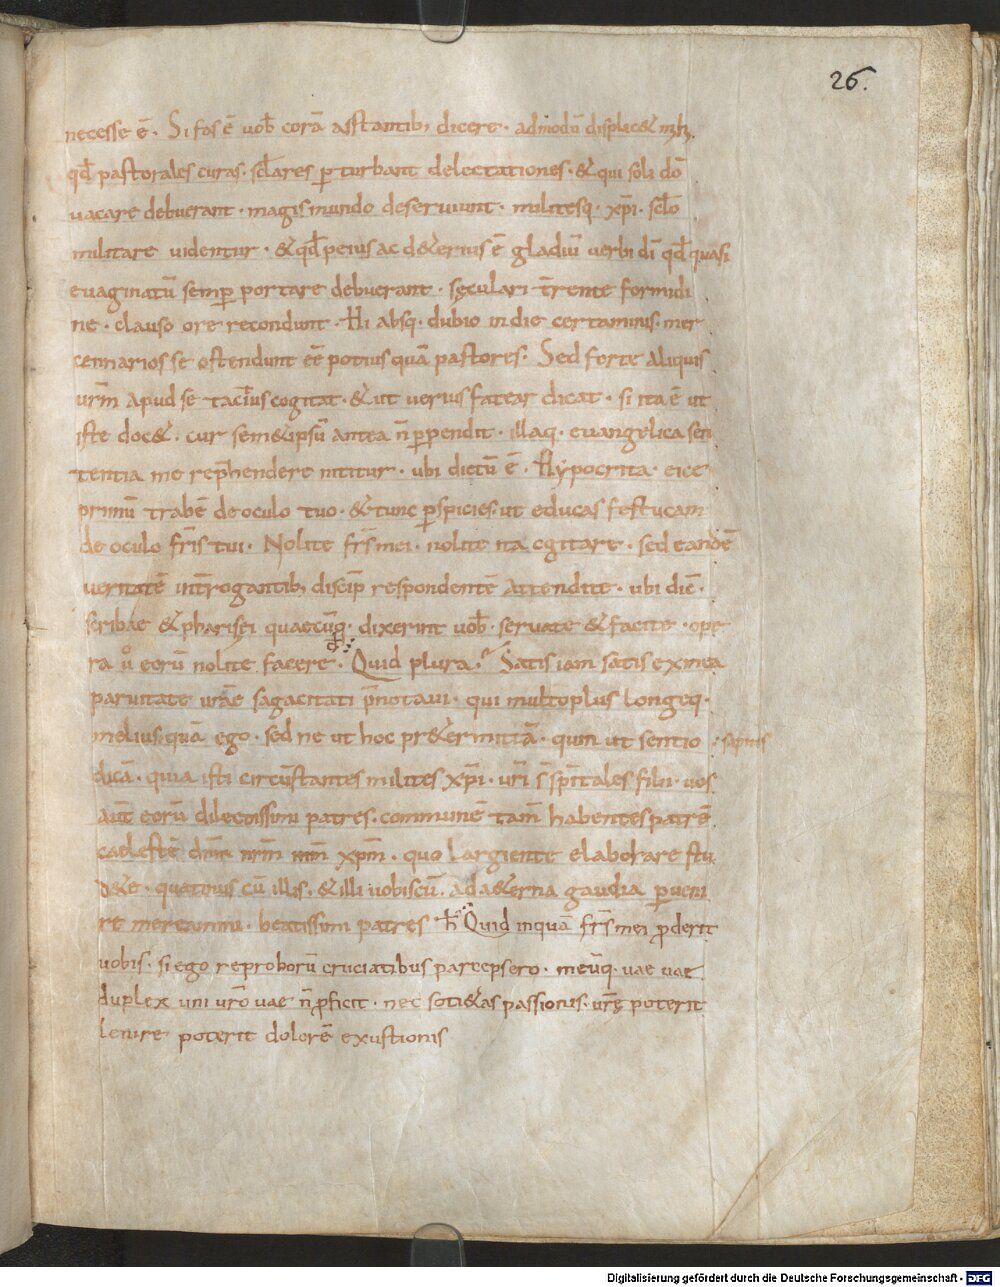 26.
necesse ē. Si fas ē uob̄ corā asstantib; dicere. admodū displic& m̄h,
qd̄ pastorales curas. sclāres p̄turbant delectationes. & qui soli dō
uacare debuerant. magis mundo deseruiunt. militesq. xp̄i. sclō
militare uidentur. & qd̄ peius ac d&erius ē gladiū uerbi dī qd̄ quasi
euaginatū semp̄ portare debuerant. sęculari t̄rente formidi
ne. clauso ore recondunt. Hi absq. dubio in die certaminis. mer
cennarios se ostendunt ēē potius quā pastores. Sed forte aliquis
urm̄ apud se tacitius cogitat. & ut uerius fatear dicat. si ita ē ut
iste doc&. cur sem&ipsū antea n̄ p̄pendit. illaq. euangelica sen
tentia me rep̄hendere nititur. ubi dictū ē. Hypocrita. eice
primū trabē de oculo tuo. & tunc p̄spicies. ut educas festucam
de oculo fr̄is tui. Nolite fr̄s mei. nolite ita cgitare. sed eandē
ueritatē int̄rogantib; discip̄ respondentē attendite. ubi dic̄.
scribae & pharisei quaecūq. dixerint uob̄. seruate & facite. ope
ra ů eorū nolite facere. Quid plura? Satis iam satis ex mea
paruitate urāe sagacitati p̄notaui. qui multoplus longeq.
melius. quā ego. sed ne ut hoc pr&ermittā. quin ut sentio : sapitis
dicā. quia isti circūstantes milites xp̄i. ur̄i s̄ sp̄itales filii. uos
aut̄ eorū dilectissimi patres. communē tam̄ habentes patrē
caelestē dn̄m nr̄m ihm̄ xp̄m. quo largiente elaborare stu
d&e. quatinus cū illis. & illi uobiscū. ad a&erna gaudia p̄ueni
re mereamini. beatissimi patres h̄ Quid inquā fr̄s mei p̄derit
uobis. si ego reproborū cruciatibus partepsero. meūq. uae uae
duplex uni ur̄o uae n̄ p̄ficit. nec soti&as passionis. ur̄ę poterit
lenire poterit dolorē exustionis
Digitalisierung gefördert durch die Deutsche Forschungsgemeinschaft - DFG